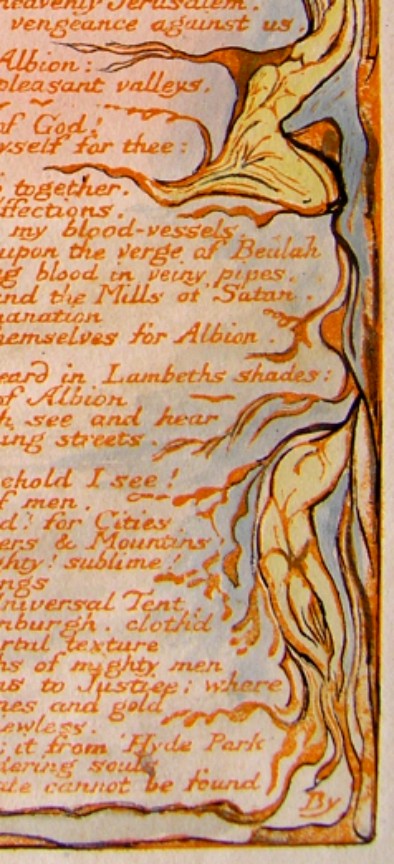 heavenly Jerusalem.
vengeance against us
Albion:
pleasant valleys.
of God!
yself for thee:
together.
ffections.
my blood-vessels
upon the verge of Beulah
ng blood in veiny pipes.
and the Mills of Satan.
manation
hemselves for Albion.
eard in Lambeths shades:
of Albion
h see and hear
ung streets
ehold I see!
f men.
d! for Cities
ers & Mountains
ghty! sublime!
ngs
Universal Tent,
nburgh. clothd
rtul texture
ns of mighty men
as to Justice: where
nes and gold
ewless.
; it from Hyde Park
dering souls
ate cannot be found
By